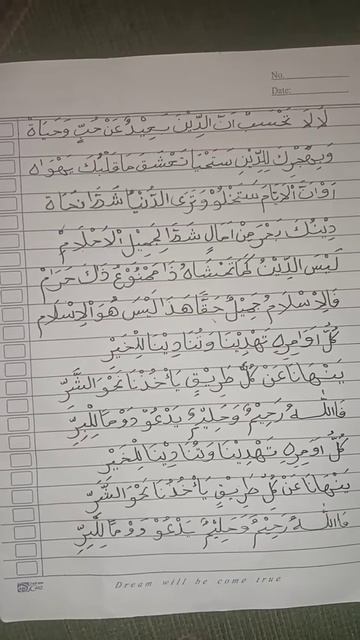 No.
Date:
لَا لَا تَحْسَبْ اَنَّ الدِّيْنَ بَعِيْدٌ عَنْ حُبٍّ وَحَيَاةْ
وَبِهَجْرِكَ لِلدِّيْنِ سَتَحْيَا تَعْشَقُ مَا قَلْبُكَ يَهْوَاه
اَوْ اَنَّ الْاَيَّامَ سَتَحْلُوْ وَتَرَى الدُّنْيَا شَطَّ نَجَاةْ
دِيْنُكَ بَحْرٌ مِنْ اٰمَالٍ شَطٌّ لِجَمِيْلِ الْاَحْلَامْ
لَيْسَ الدِّيْنُ كَمَا تَخْشَاهُ ذَا مَمْنُوْعٌ ذَكَ حَرَامْ
فَالْاِسْلَامُ جَمِيْلٌ حَقًّا هَذَا لَيْسَ هُوَ الْاِسْلَامْ
كُلُّ اَوَامِرِهِ تَهْدِيْنَا وَتُنَادِيْنَا لِلْخَيْرْ
يَنْهَانَا عَنْ كُلِّ طَرِيْقٍ يَأْخُذُنَا نَحْوَ الشَّرّْ
فَاللّٰهُ رَحِيْمٌ وَحَلِيْمٌ يَدْعُوْ دَوْمًا لِلْبِرّْ
كُلُّ اَوَامِرِهِ تَهْدِيْنَا وَتُنَادِيْنَا لِلْخَيْرْ
يَنْهَانَا عَنْ كُلِّ طَرِيْقٍ يَأْخُذُنَا نَحْوَ الشَّرّْ
فَاللّٰهُ رَحِيْمٌ وَحَلِيْمٌ يَدْعُوْ دَوْمًا لِلْبِرّْ
Dream will be come true